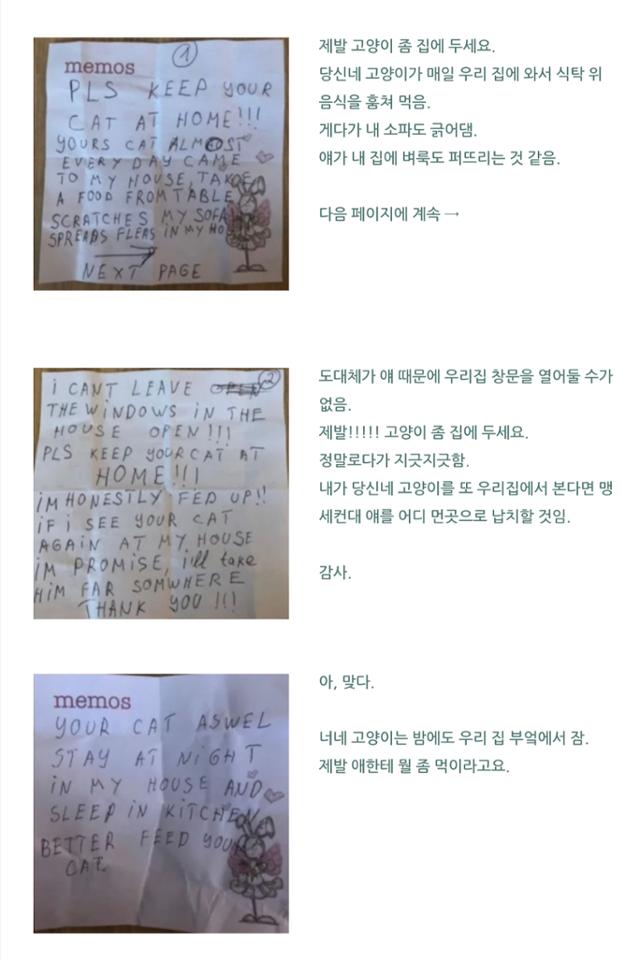 1
memos
PLS KEEP YOUR
CAT AT HOME!!!
YOURS CAT ALMOST
EVERY DAY CAME
TO MY HOUSE, TAKE
A FOOD FROM TABLE,
SCRATCHES MY SOFA
SPREADS FLEAS IN MY
NEXT PAGE
제발 고양이 좀 집에 두세요.
당신네 고양이가 매일 우리 집에 와서 식탁 위
음식을 훔쳐 먹음.
게다가 내 소파도 긁어댐.
얘가 내 집에 벼룩도 퍼뜨리는 것 같음.
다음 페이지에 계속 →
2
I CANT LEAVE
THE WINDOWS IN THE
HOUSE OPEN!!!
PLS KEEP YOUR CAT AT
HOME!!!
IM HONESTLY FED UP!!
IF I SEE YOUR CAT
AGAIN AT MY HOUSE
IM PROMISE, i'll take
HIM FAR SOMWHERE
THANK YOU !!!
도대체가 얘 때문에 우리집 창문을 열어둘 수가
없음.
제발!!!!! 고양이 좀 집에 두세요.
정말로다가 지긋지긋함.
내가 당신네 고양이를 또 우리집에서 본다면 맹
세컨대 얘를 어디 먼곳으로 납치할 것임.
감사.
memos
YOUR CAT ASWEL
STAY AT NIGHT
IN MY HOUSE AND
SLEEP IN KITCHEN
BETTER FEED YOUR
CAT.
아, 맞다.
너네 고양이는 밤에도 우리 집 부엌에서 잠.
제발 애한테 뭘 좀 먹이라고요.